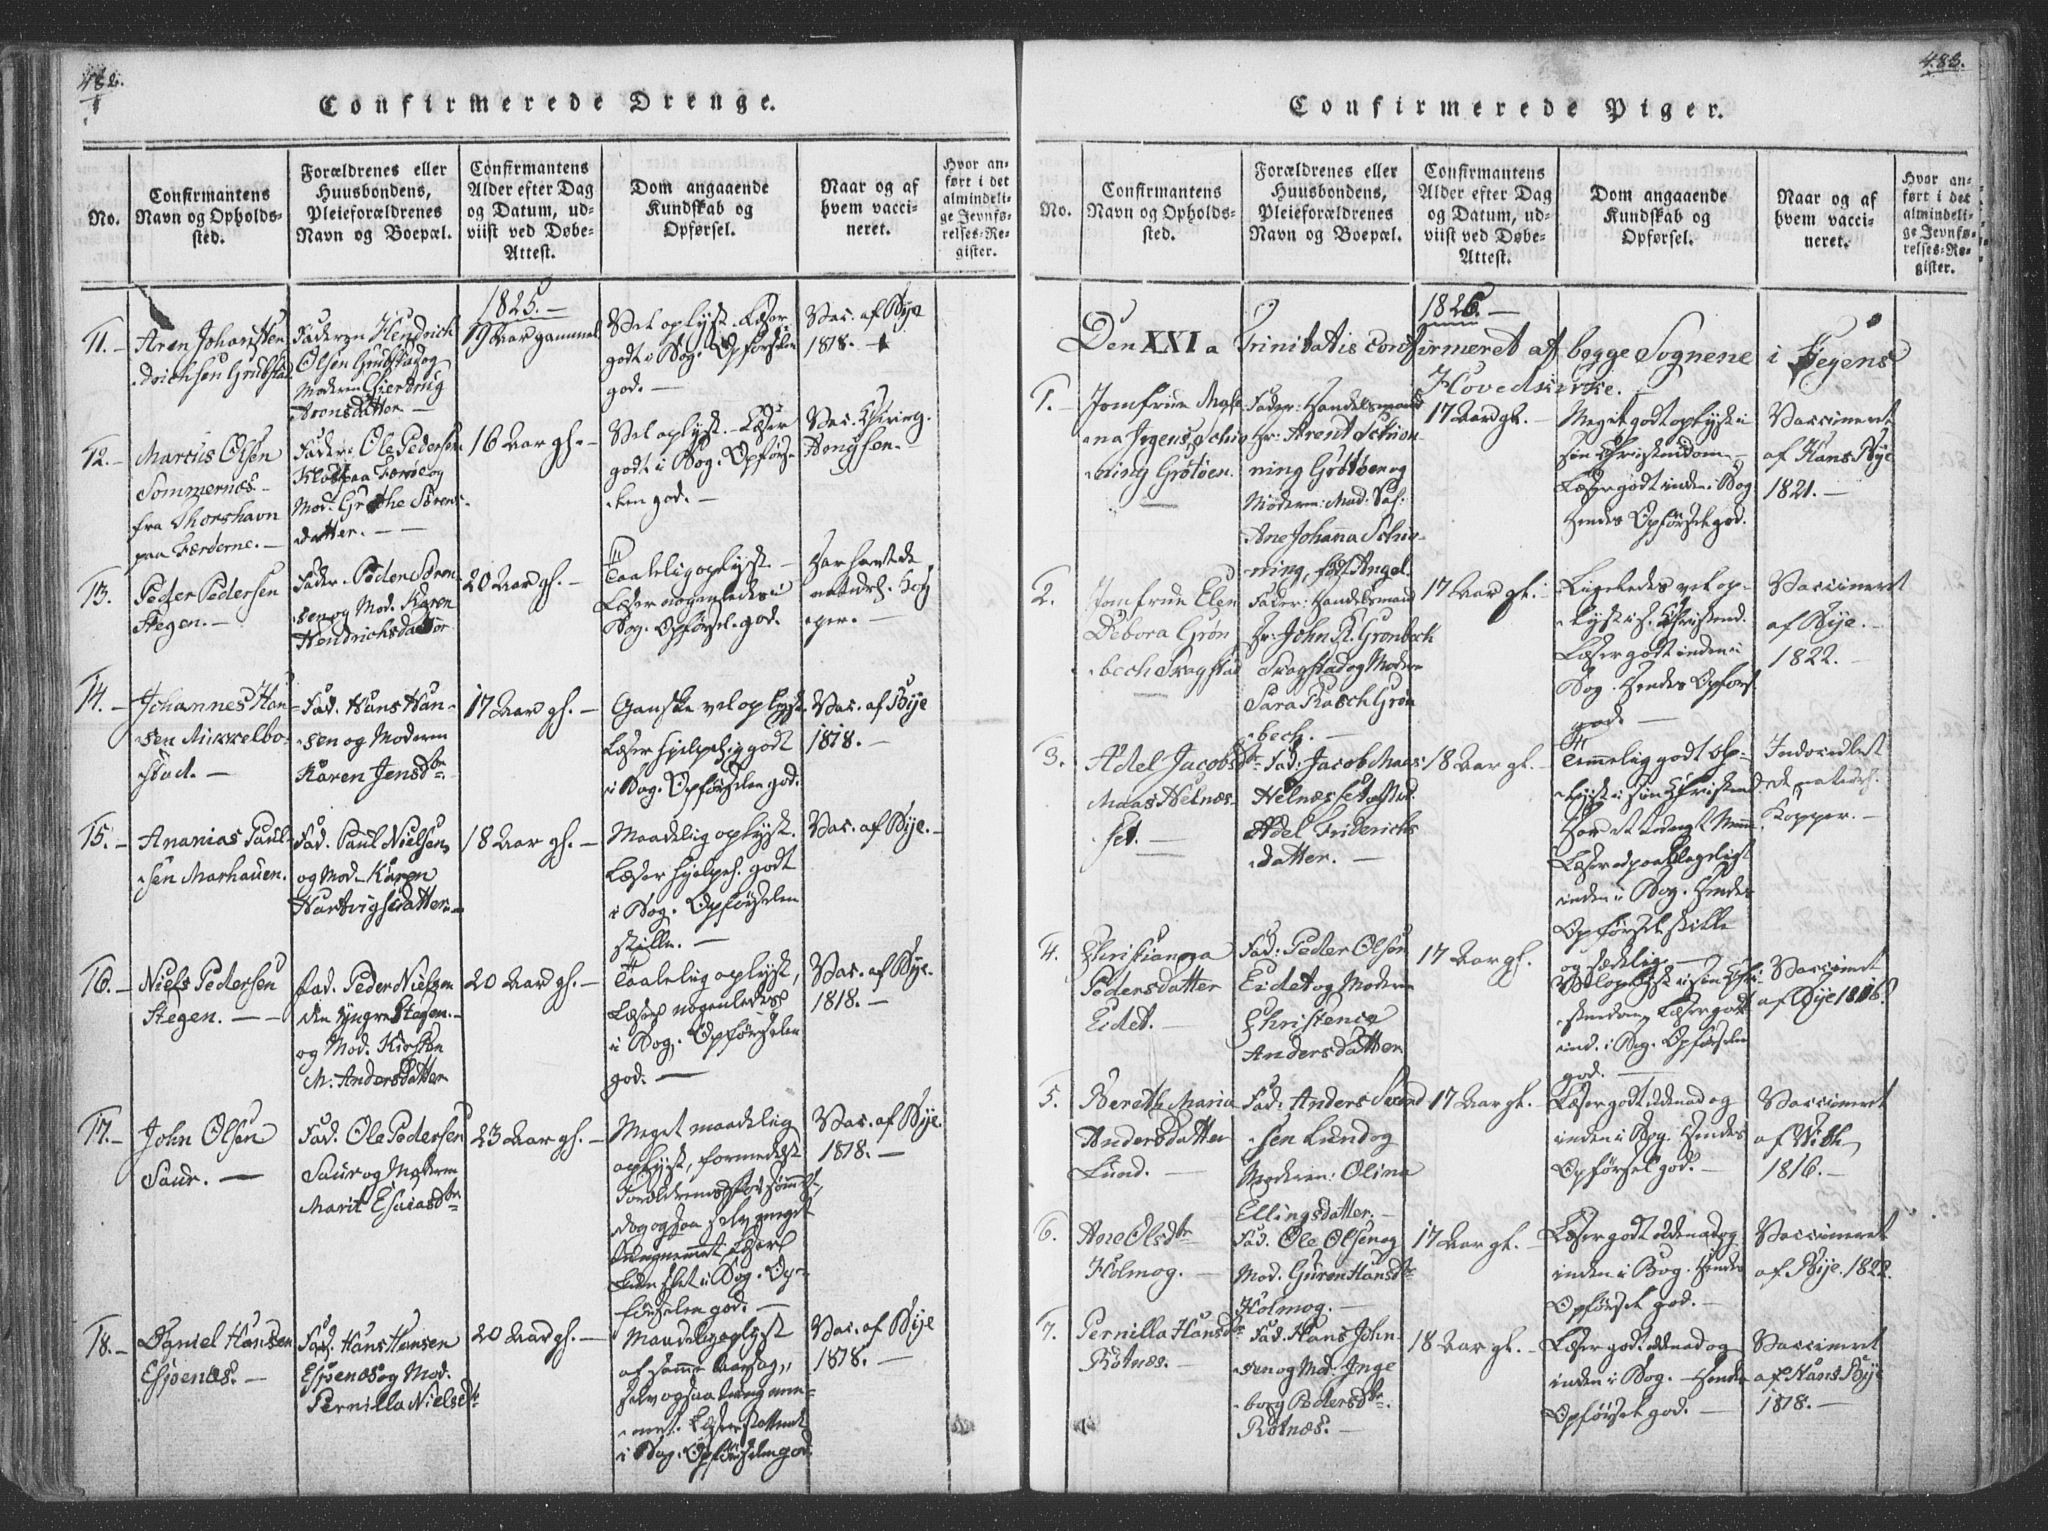 482.
Confirmerede Drenge.
No.
Confirmantens Navn og Opholds-sted.
Forældrenes eller Huusbondens, Pleieforældrenes Navn og Boepæl.
Confirmantens Alder efter Dag og Datum, ud-viist ved Døbe-Attest.
Dom angaaende Kundskab og Opførsel.
Naar og af hvem vacci-neret.
Hvor an-ført i det almindeli-ge Jevnfø-relses-Re-gister.
1825.
11.
Aron Johan Hen
drichsen Grubstad
Faderen Hendrich
Olsen Grubstad og
Moderen Giertrug
Aronsdatter
19 Aar gammel
Vel oplyst. Læser
godt i Bog. Opførselen
god.
Vac. af Bye
1818.
12.
Marcus Olsen
Sommernæs
fra Thorshavn
paa Færöerne.
Fader: Ole Pedersen
paa Feröe og
Mod. Grethe Sörens
datter.
16 Aar gl.
Vel oplyst. Læser
godt i Bog. Opførse
len god.
Vac. Chirurg.
13.
Peder Pedersen
Stegen.
Fader. Peder Sören
sen og Mod. Karen
Hendrichsdatter
20 Aar gl.
Taalelig oplyst
Læser nogenledes i
Bog. Opførsel. god.
Har havt de
naturl. Kop
per.
14.
Johannes Han
sen Mikkelbo
stad.
Fad. Hans Han
sen og Moderen
Karen Jensdtr
17 Aar gl.
Ganske vel oplyst
Læser hjelpelig godt
i Bog. Opførselen god.
Vac. af Bye
1818.
15.
Ananias Paul
sen Marhauen.
Fad. Paul Nielsen
og Mod. Karen
Hartvigsdatter
18 Aar gl.
Maadelig oplyst.
Læser hjelpel. godt
i Bog. Opförselen
stille.
Vac. af Bye.
16.
Niels Pedersen
Stegen.
Fad. Peder Nielsen
den yngre Stegen.
og Mod. Kirsten
M. Andersdatter
20 Aar gl.
Taalelig oplyst,
Læser nogenledes
i Bog. Opförselen
god.
Vac. af Bye.
1818.
17.
John Olsen
Saur.
Fad. Ole Pedersen
Saur og Moderen
Marit Esaiasdtr
23 Aar gl.
Meget maadelig
oplyst, formedelst
Forældrenes Forsömmel
dog ogsaa selv meget
tungnemmet. Læser
slet i Bog. Op
förselen god.
Vac. af Bye.
1818.
18.
Daniel Hansen
Espenæs.
Fad. Hans Hansen
Espenæs og Mod.
Pernilla Nielsdtr
20 Aar gl.
Maadelig oplyst
af samme Aarsag,
selv ogsaa tungnem
met. Læser
i Bog. Opförselen god
Vac. af Bye
1818.
483.
Confirmerede Piger.
No.
Confirmantens Navn og Opholds-sted.
Forældrenes eller Huusbondens, Pleieforældrenes Navn og Boepæl.
Confirmantens Alder efter Dag og Datum, ud-viist ved Døbe-Attest.
Dom angaaende Kundskab og Opførsel.
Naar og af hvem vacci-neret.
Hvor an-ført i det almindeli-ge Jevnfø-relses-Re-gister.
1826.
Den XXI a Trinitatis confirmeret af begge Sognene i Stegens
Hovedkirke.
1.
Jomfrue
Jegens Schio
ning Grötöen.
Fader: Handelsmand
Hr: Arent Schiön
ning Grötöen og
Moderen: Mad: Sal:
Ane Johanna Schiö
ning, född Angel.
17 Aar gl.
Meget godt oplyst i
sin Christendom
Læser godt inden i Bog
Hendes Opförsel god.
Vaccineret
af Hans Bye
1821.
2.
Jomfrue Elen
Debora Grön
bech Tragstad
Fader: Handelsmand
Hr: John R. Grönbech
Tragstad og Moder
Sara Rasch Grön
bech.
17 Aar gl.
Ligeledes vel op
lyst i s. Christend.
Læser godt inden i
Bog. Hendes Opförs.
god.
Vaccineret
af Bye.
1822.
3.
Adel Jacobsdtr
Maas Helnæs
set.
Fad: Jacob Maas
Helnæsset og Mod.
Adel Friderichs
datter.
18 Aar gl.
Temmelig godt op
lyst i sin Christend
Læser
inden i Bog. Hendes
Opförsel stille
og sædelig.
de naturl.
Kopper.
4.
Christianna
Pedersdatter
Eidet.
Fad: Peder Olsen
Eidet og Moder
Christence
Andersdatter
17 Aar gl.
Vel oplyst i sin Chri
stendom Læser godt
ind. i Bog. Opförselen
god.
Vaccineret
af Bye 1816.
5.
Bereth Maria
Andersdatter
Lund.
Fad: Anders Svend
sen Lund og
Moderen: Olina
Ellingsdatter.
17 Aar gl.
Læser godt udenad og
inden i Bog. Hendes
Opförsel god.
Vaccineret
af With
1816.
6.
Ane Olsdtr
Holmog.
Fad. Ole Olsen og
Mod. Guren Hansdtr
Holmog.
17 Aar gl.
Læser godt udenad og
inden i Bog. Hendes
Opförsel god.
Vaccineret
af Bye. 1822.
7.
Pernilla Hansdtr
Rötnæs.
Fad. Hans John
sen og Mod. Inge
borg Pedersdtr.
Rötnæs.
18 Aar gl.
Læser godt udenad og
inden i Bog. Hendes
Opförsel god.
Vaccineret
af Hans Bye
1818.